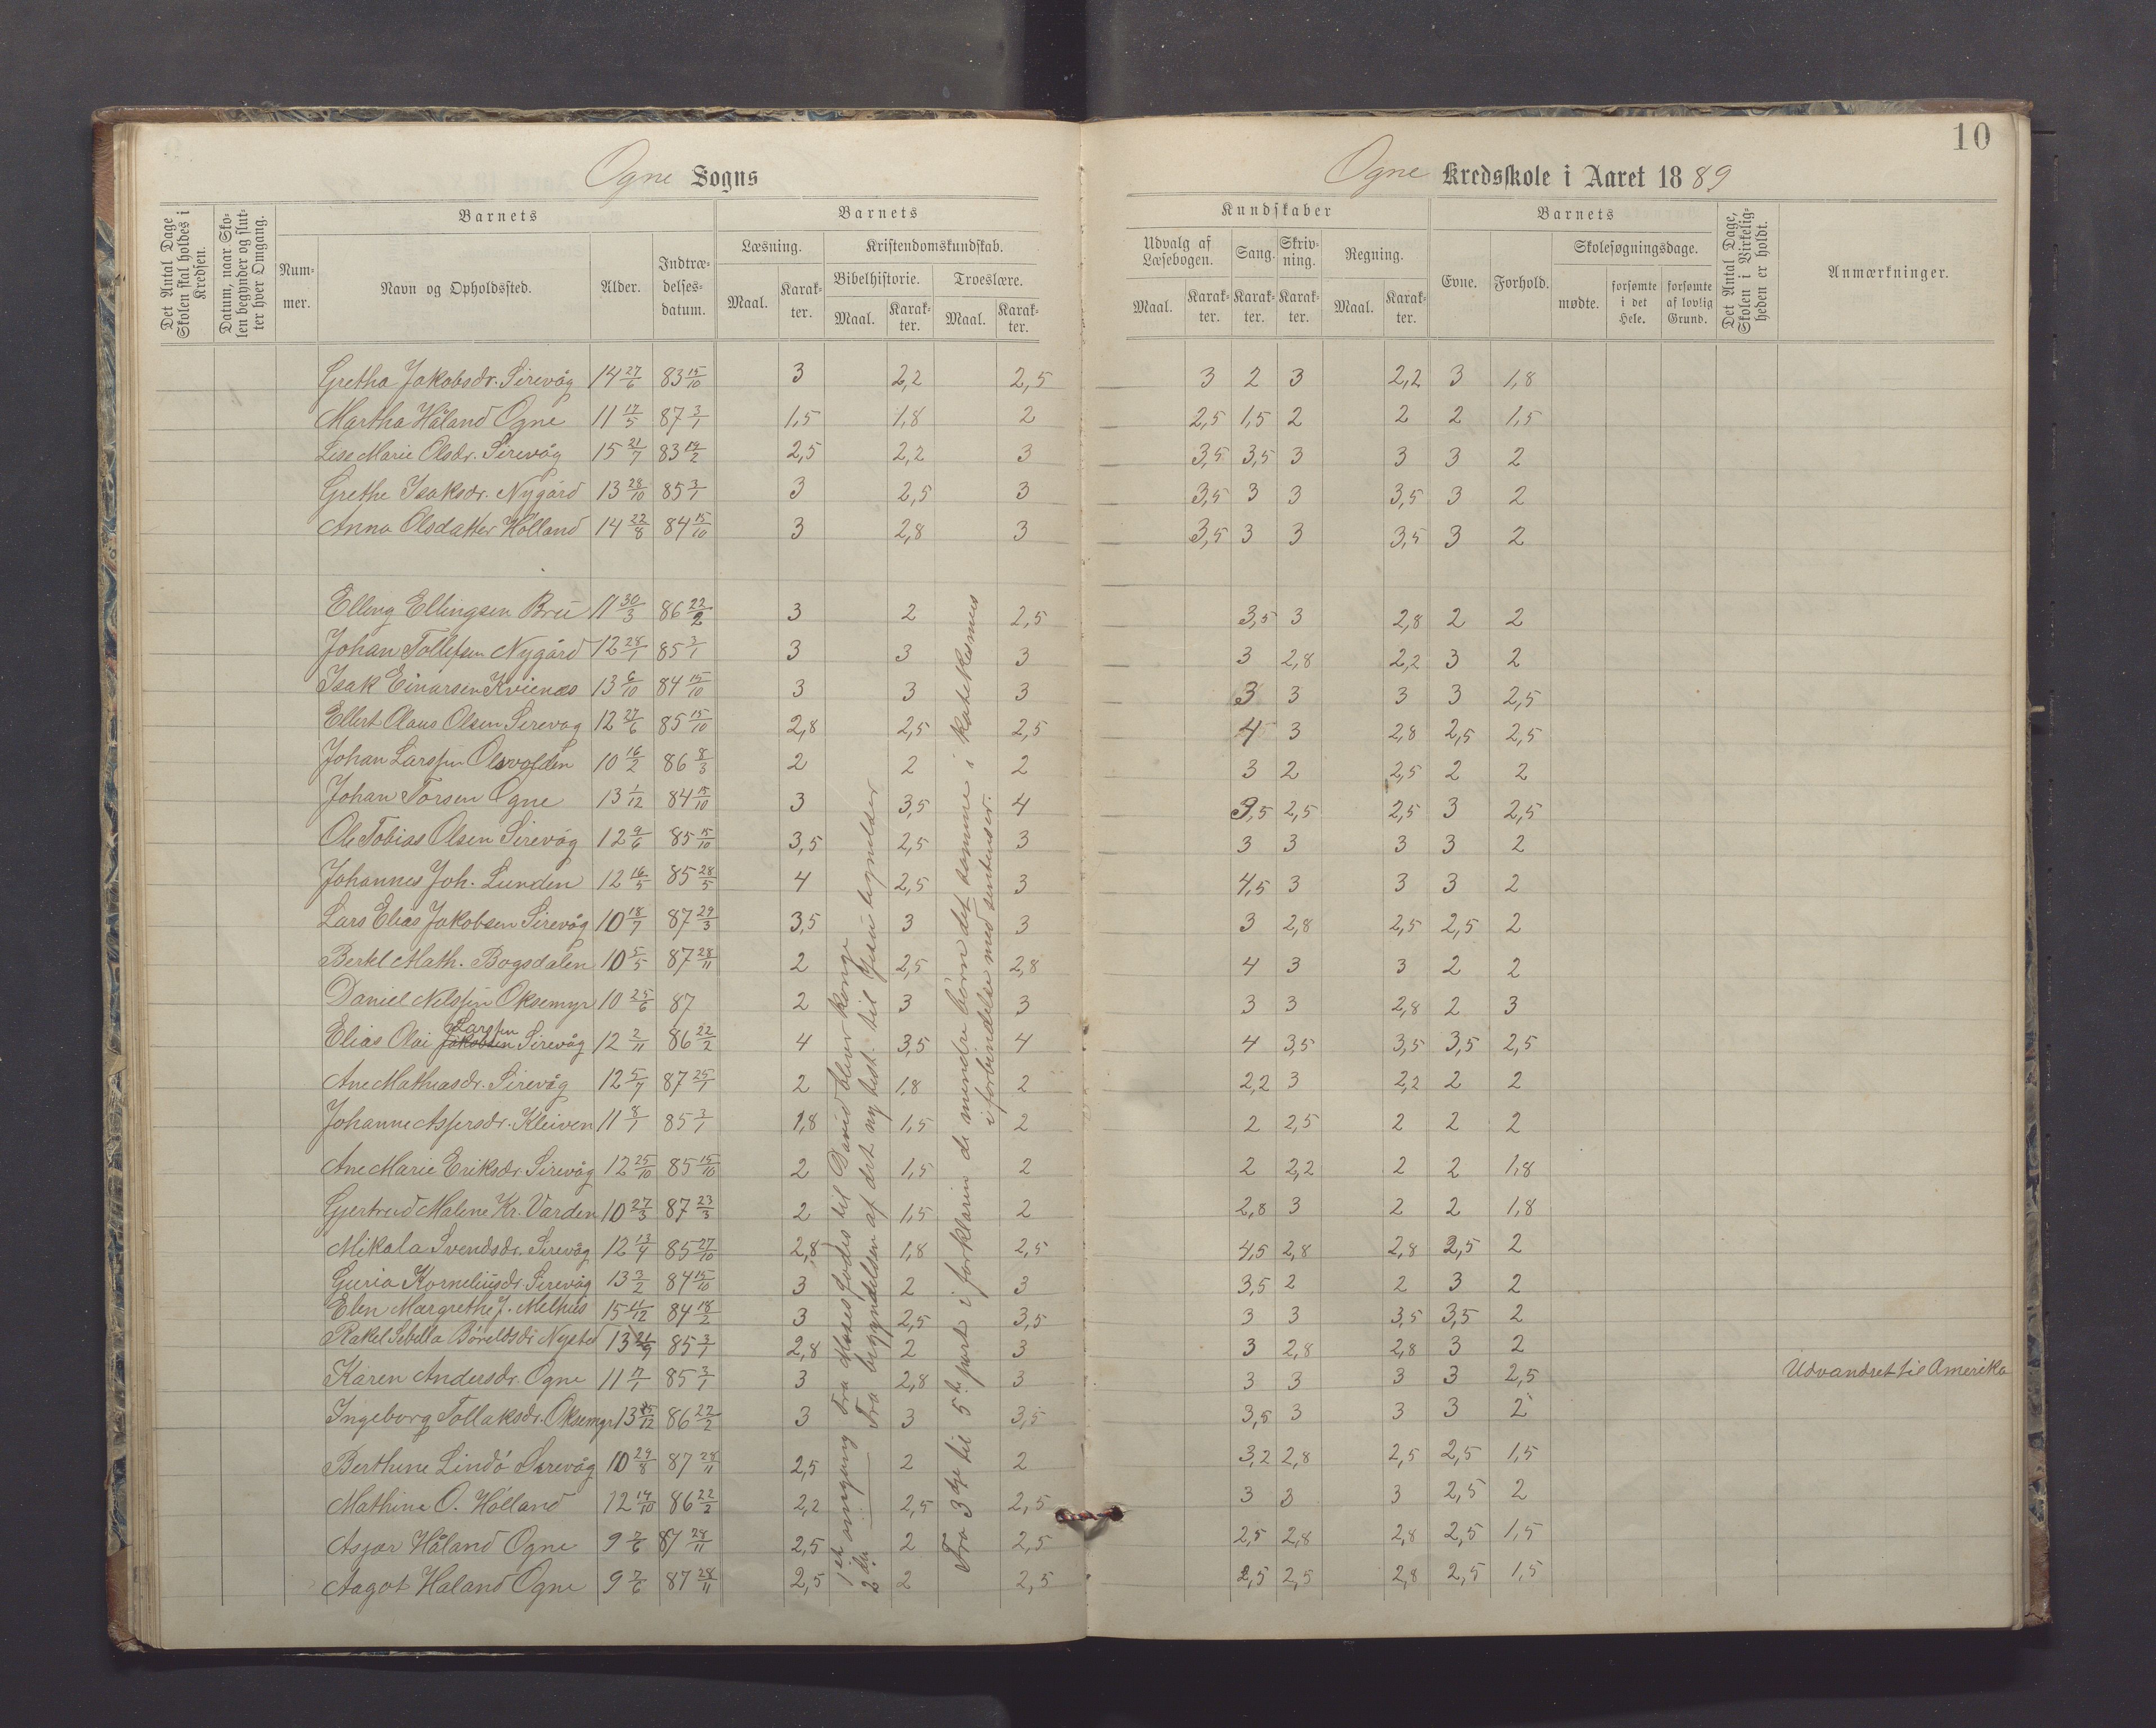 10
Ogne Sogns
Ogne Kredsskole i Aaret 1889
Det Antal Dage Skolen skal holdes i Kredsen.
Datum, naar Skolen begynder og slutter hver Omgang.
Nummer.
Barnets
Navn og Opholdssted.
Alder.
Indtrædelsesdatum.
Barnets
Læsning.
Maal.
Karakter.
Kristendomskundskab.
Bibelhistorie.
Maal.
Karakter.
Troeslære.
Maal.
Karakter.
Kundskaber
Udvalg af Læsebogen.
Maal.
Karakter.
Sang.
Karakter.
Skrivning.
Karakter.
Regning.
Maal.
Karakter.
Barnets
Evne.
Forhold.
Skolesøgningsdage.
mødte.
forsømte i det Hele.
forsømte af lovlig Grund.
Det Antal Dage, Skolen i Virkeligheden er holdt.
Anmærkninger.
Gretha Jakobsdr. Sirevåg 14 27/6 83 15/10 3 2,2 2,5 3 2 3 2,2 3 1,8
Martha Håland Ogne 11 17/5 87 3/1 1,5 1,8 2 2,5 1,5 2 2 2 1,5
Lise Marie Olsdr. Sirevåg 15 21/7 83 19/2 2,5 2,2 3 3,5 3,5 3 3 3 2
Grethe Isaksdr. Nygård 13 28/10 85 3/1 3 2,5 3 3,5 3 3 3,5 3 2
Anna Olsdatter Hölland 14 22/8 84 15/10 3 2,8 3 3,5 3 3 3,5 3 2
Elling Ellingsen Bru 11 30/3 86 22/2 3 2 2,5 3,5 3 2,8 2 2
Johan Tollefsen Nygård 12 28/1 85 3/1 3 3 3 3 2,8 2,2 3 2
Isak Einarsen Kvienæs 13 6/10 84 15/10 3 3 3 3 3 3 3 2,5
Ellert Olaus Olsen Sirevåg 12 27/6 85 15/10 2,8 2,5 2,5 4 3 2,8 2,5 2,5
Johan Larssen Olsvolden 10 16/2 86 8/3 2 2 2 3 2 2,5 2 2
Johan Torsen Ogne 13 1/12 84 15/10 3 3,5 4 3,5 2,5 2,5 3 2,5
Ole Tobias Olsen Sirevåg 12 9/6 85 15/10 3,5 2,5 3 3 3 3 3 2
Johannes Joh. Lunden 12 16/5 85 28/5 4 2,5 3 4,5 3 3 3 2
Lars Elias Jakobsen Sirevåg 10 18/7 87 29/3 3,5 3 3 3 2,8 2,5 2,5 2
Berkl Math. Bogsdalen 10 5/5 87 28/11 2 2,5 2,8 4 3 3 2 2
Daniel Nilssen Oksemyr 10 25/6 87 2 3 3 3 3 2,8 2 3
Larssen
Elias Olai Jakobsen Sirevåg 12 2/11 86 22/2 4 3,5 4 4 3,5 3,5 3,5 2,5
Ane Mathiasdr. Sirevåg 12 5/7 87 25/1 2 1,8 2 2,2 3 2,2 2 2
Johanne Aspersdr. Kleiven 11 8/1 85 3/1 1,8 1,5 2 2 2,5 2 2 2
Ane Marie Eriksdr. Sirevåg 12 25/10 85 15/10 2 1,5 2 2 2,2 2 2 1,8
Gjertrud Malene Kr. Varden 10 27/3 87 23/3 2 1,5 2 2,8 3 2 2 1,8
Mikala Svendsdr. Sirevåg 12 13/4 85 27/10 2,8 1,8 2,5 4,5 2,8 2,8 2,5 2
Guria Korneliusdr. Sirevåg 13 3/2 84 15/10 3 2 3 3,5 2 2 3 2
Elen Margrethe J. Melhus 15 11/12 84 18/2 3 2,5 3,5 3 3 3,5 3,5 2
Rakel Sebella Böreldsdr Nysted 13 21/9 85 3/1 2,8 2 3 3 2,8 2,8 3 2
Karen Andersdr. Ogne 11 17/1 85 3/1 3 2,8 3 3 3 3 3 2,5 Udvandret til Amerika
Ingeborg Tollaksdr. Oksemyr 13 15/12 86 22/2 3 3 3,5 3,5 3 3 3 2
Berthine Lindö Sirevåg 10 29/8 87 28/11 2,5 2 2 3,2 2,8 2,5 2,5 1,5
Mathine O. Hölland 12 14/10 86 22/2 2,2 2,5 2,5 3 3 3 2,5 2
Asjar Håland Ogne 9 7/6 87 28/11 2,5 2 2,5 2,5 2,8 2,8 2,5 1,5
Aagot Håland Ogne 9 7/6 87 28/11 2,5 2 2,5 2,5 2,5 2,8 2,5 1,5
1ste omgang Fra Moses fodes til David bliver konge
2den — Fra begyndelsen af det ny test. til Jesu lignelser
Fra 3dje til 5te part i forklarin de mindre börn det samme i katekesmes
i forbindelse med sentenser.